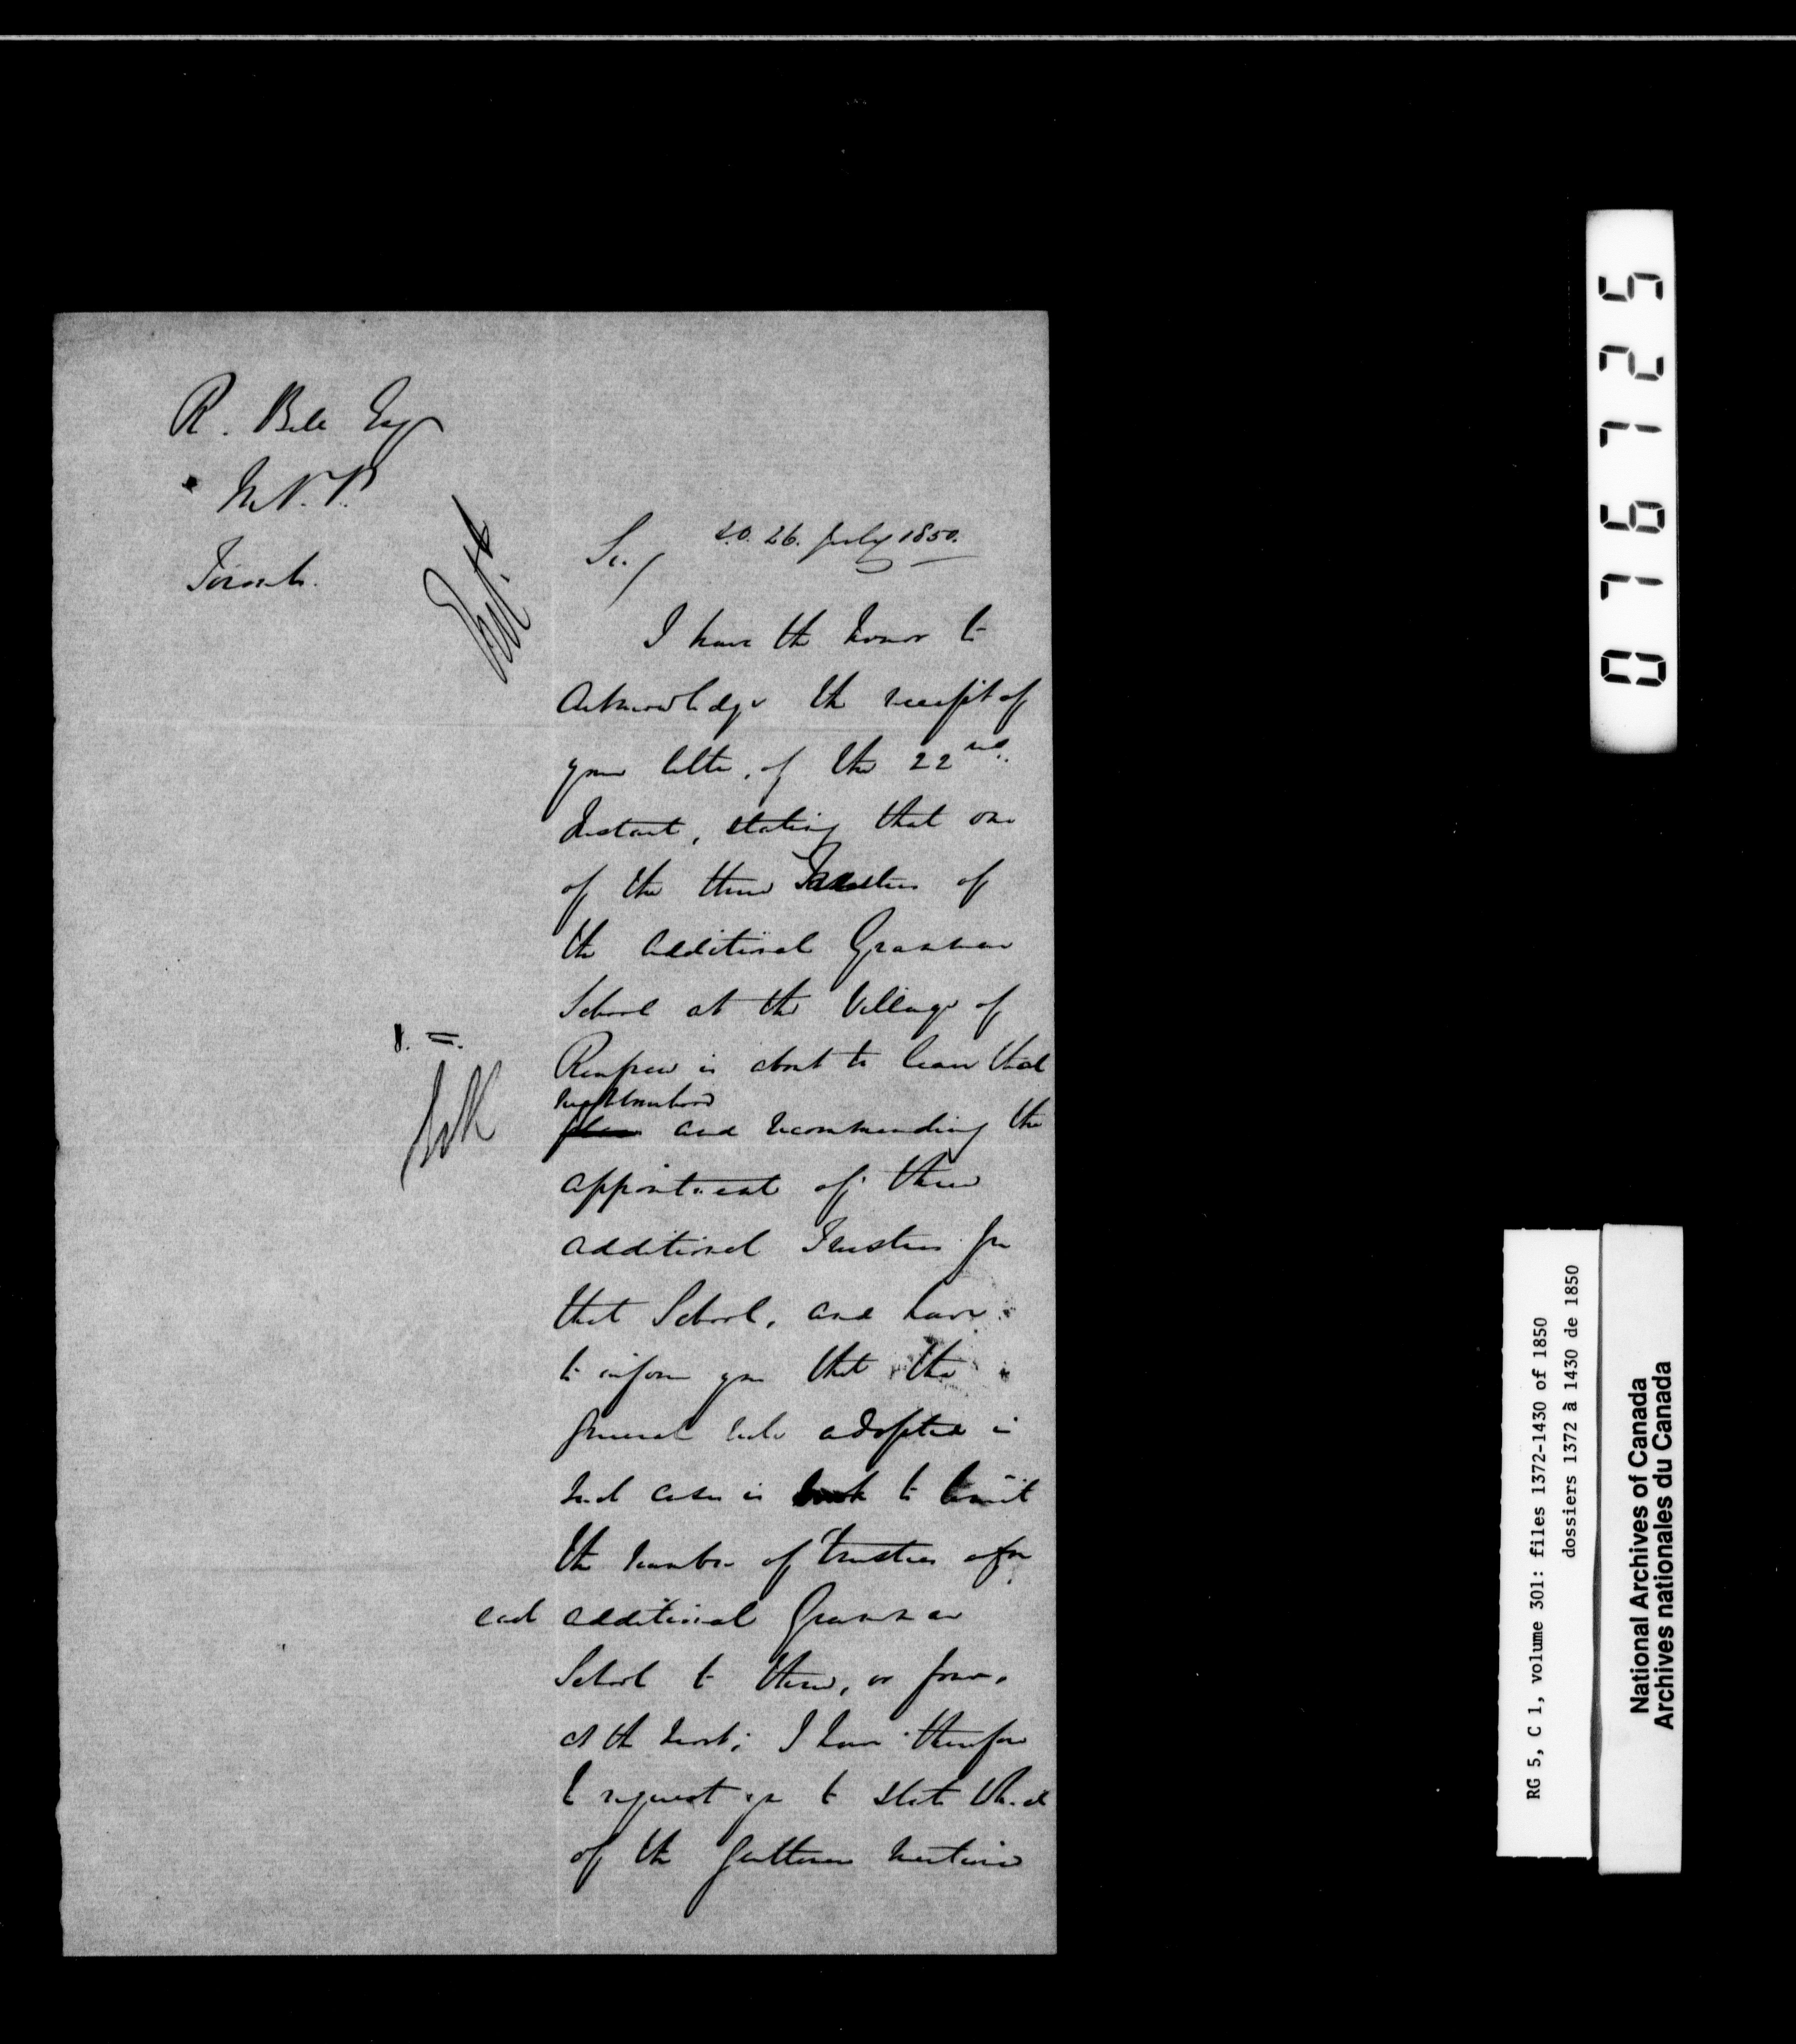 R. Bell Esq
M.P.P.
Toronto.
S.O. 26. July 1850.
Sir,
I have the honor to
acknowledge the receipt of
your letter, of the 22nd.
Instant, stating that one
of the three Trustees of
the additional Grammar
School at the Village of
Renfrew is about to leave that
neighbourhood
place and recommending the
appointment of three
additional Trustees for
that School, and have
to inform you that the
general rule adopted in
such cases is to limit
the number of trustees for
each additional Grammar
School to three, or four,
at the most; I have therefore
to request you to state which
of the Gentlemen mentioned
076725
RG 5, C 1, volume 301: files 1372-1430 of 1850
dossiers 1372 à 1430 de 1850
National Archives of Canada
Archives nationales du Canada